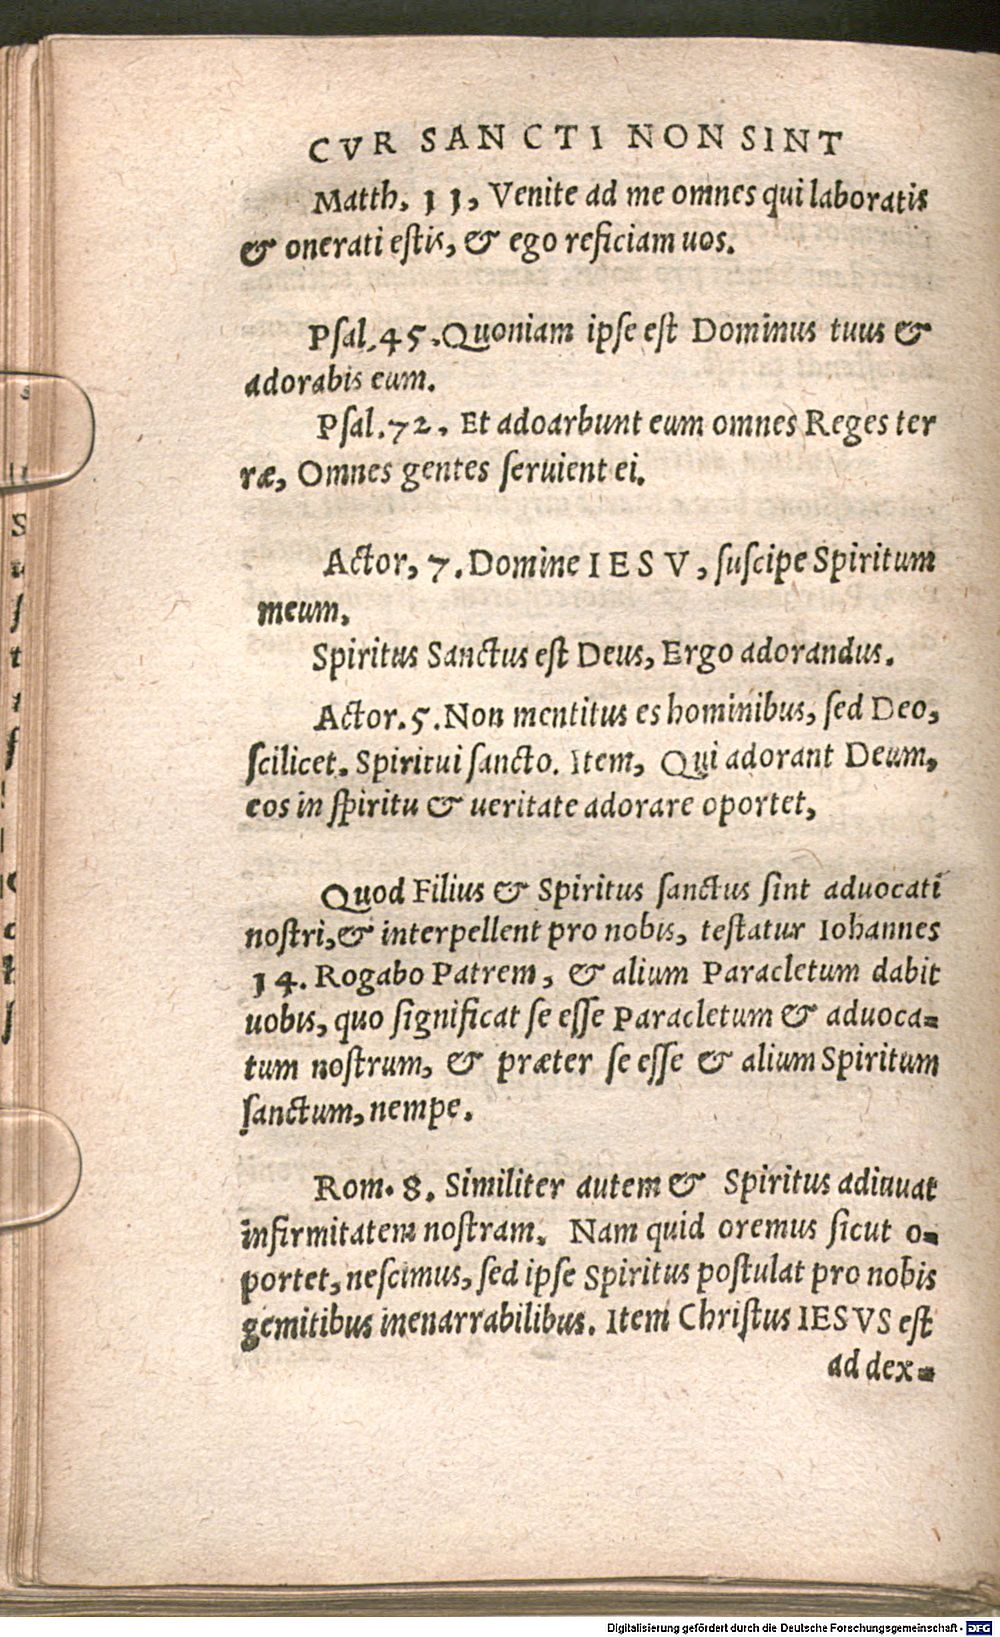 CVR SANCTI NON SINT
Matth. 11, Venite ad me omnes qui laboratis
& onerati estis, & ego reficiam uos.
Psal. 45. Quoniam ipse est Dominus tuus &
adorabis eum.
Psal. 72. Et adoarbunt eum omnes Reges ter
ræ, Omnes gentes seruient ei.
Actor, 7. Domine IESV, suscipe Spiritum
meum.
Spiritus Sanctus est Deus, Ergo adorandus.
Actor. 5. Non mentitus es hominibus, sed Deo,
scilicet. Spiritui sancto. Item, Qui adorant Deum,
eos in spiritu & ueritate adorare oportet,
Quod Filius & Spiritus sanctus sint aduocati
nostri, & interpellent pro nobis, testatur Iohannes
14. Rogabo Patrem, & alium Paracletum dabit
uobis, quo significat se esse Paracletum & aduoca-
tum nostrum, & præter se esse & alium Spiritum
sanctum, nempe.
Rom. 8. Similiter autem & Spiritus adiuuat
infirmitatem nostram. Nam quid oremus sicut o-
portet, nescimus, sed ipse Spiritus postulat pro nobis
gemitibus inenarrabilibus. Item Christus IESVS est
ad dex-
Digitalisierung gefördert durch die Deutsche Forschungsgemeinschaft - DFG